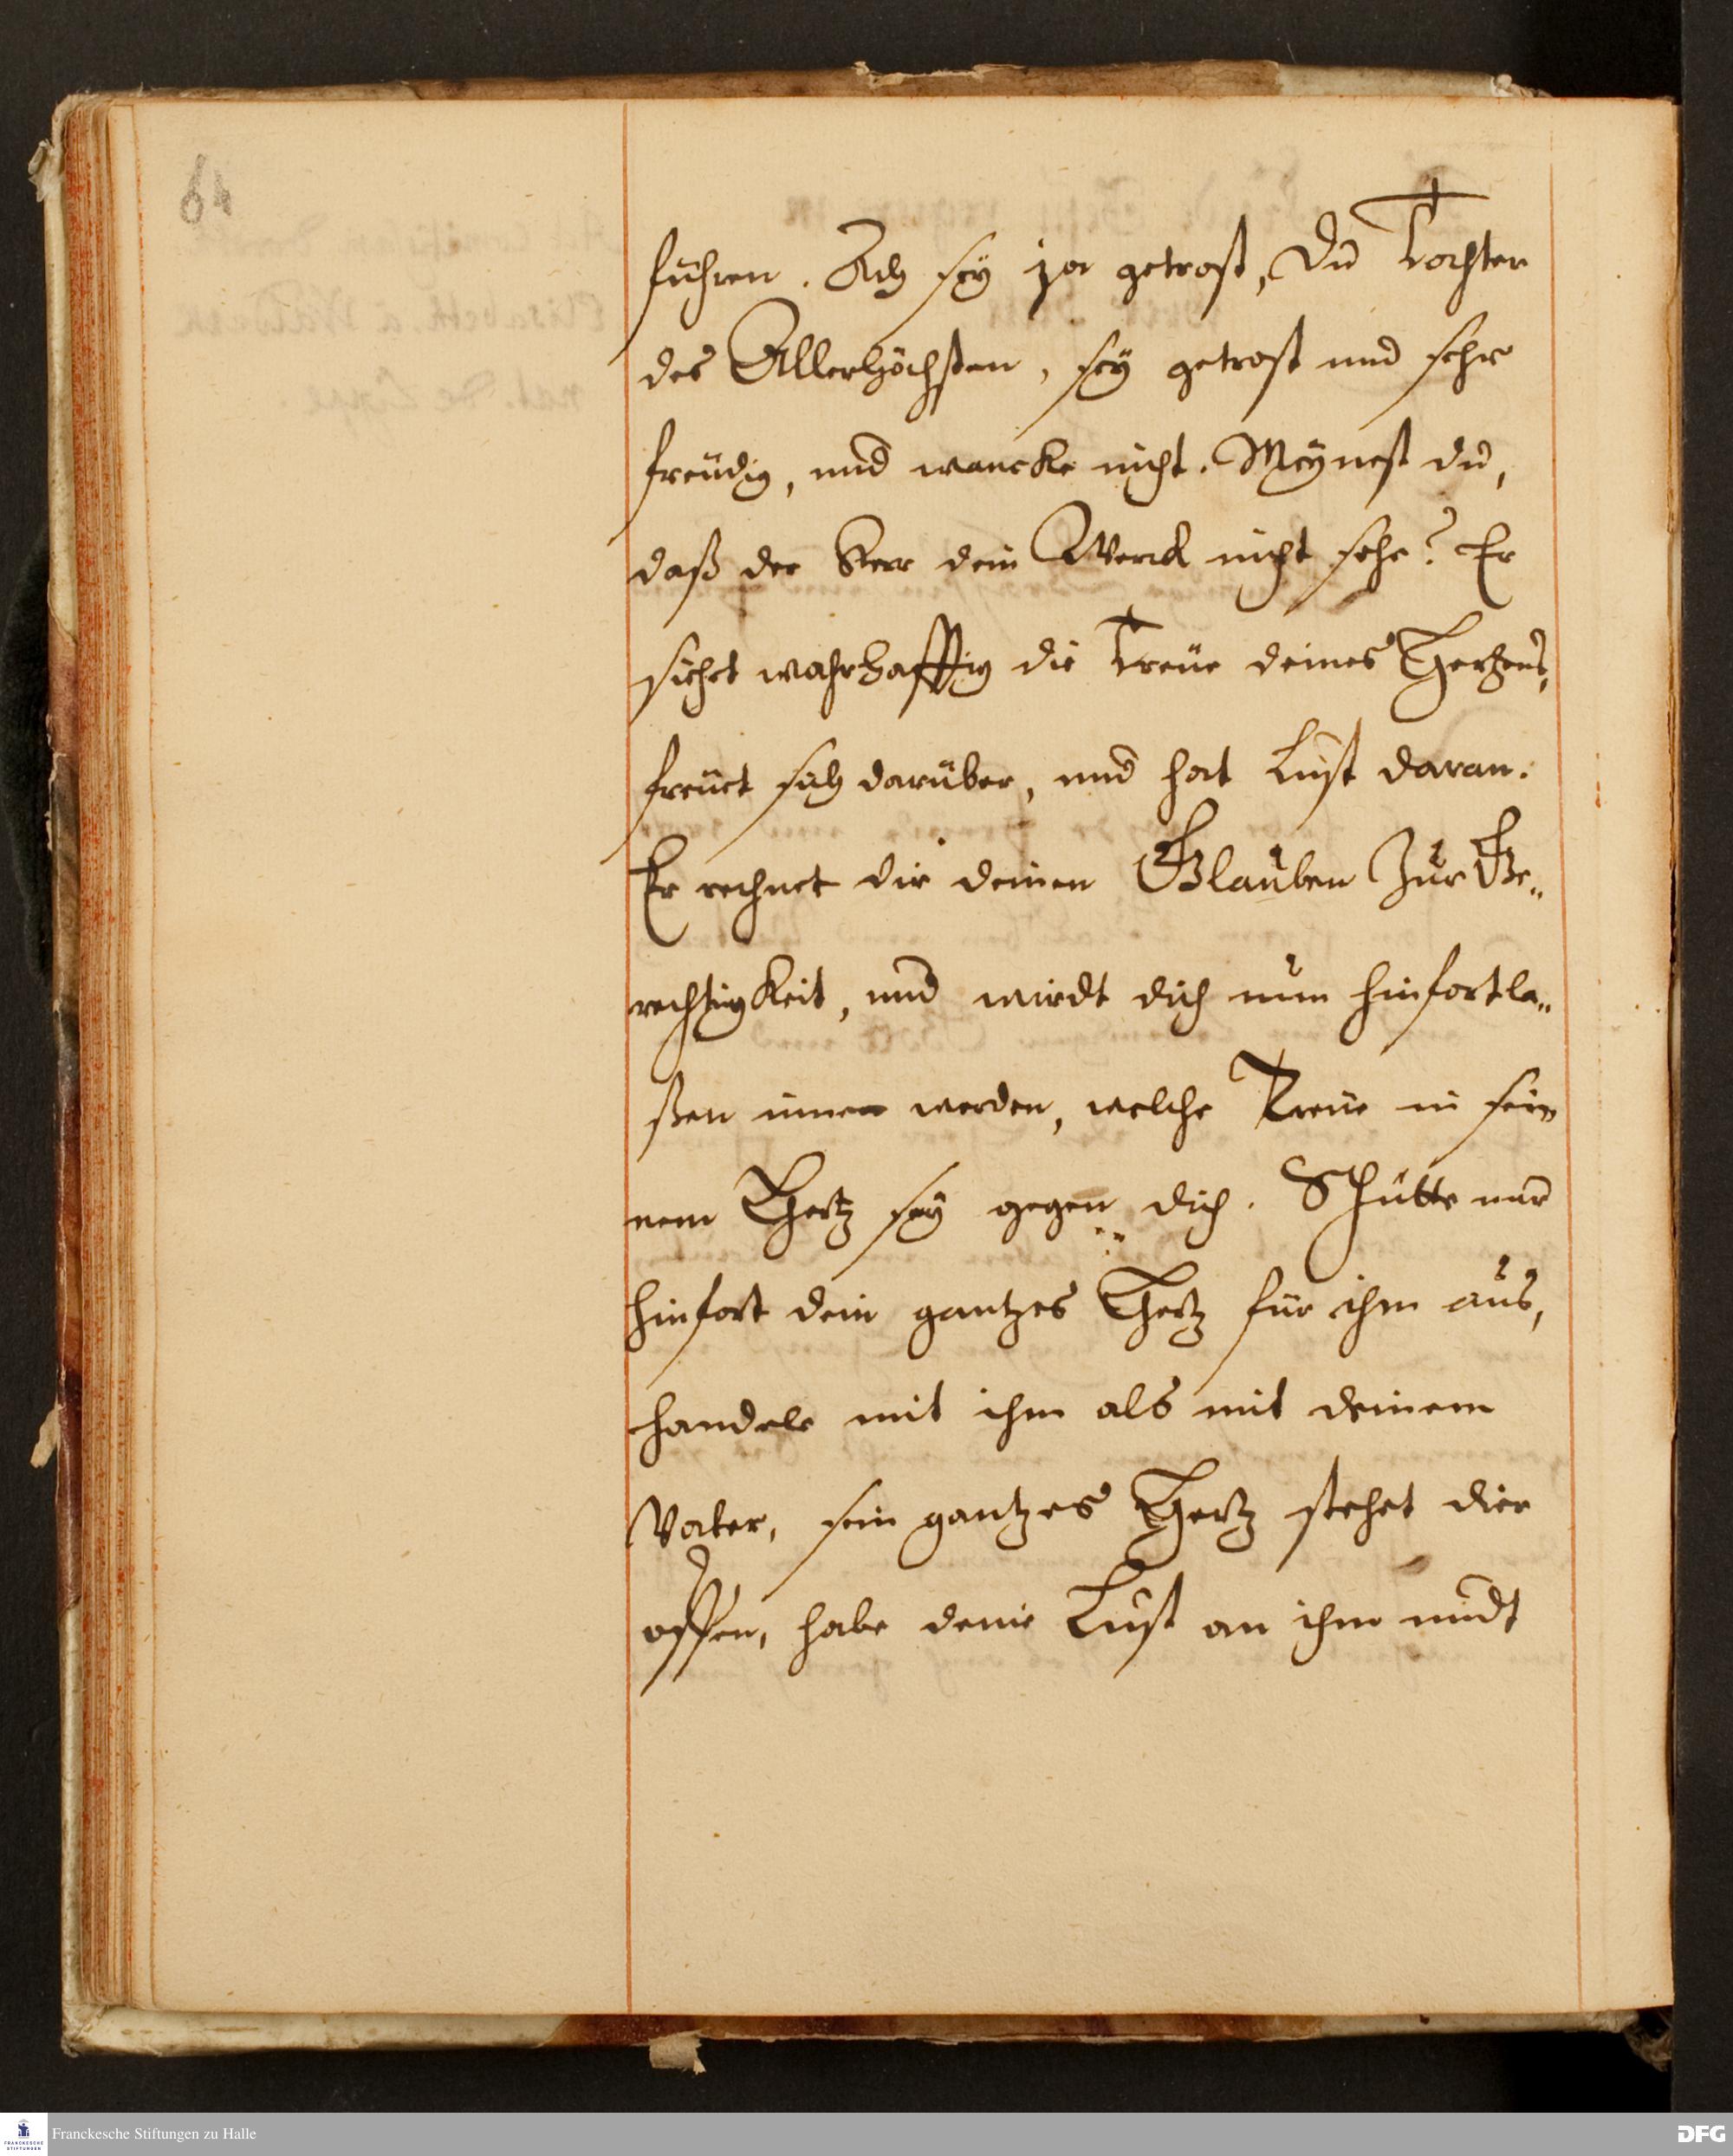 64
führen. Ach seÿ ja getrost, Du Tochter
des Allerhöchsten, seÿ getrost und sehr
freudig, und wancke nicht. Meÿnest du,
daß der Herr dein Werck nicht sehe? Er
siehet wahrhafftig die Treue deines Hertzens,
freuet sich darüber, und hat Lust daran.
Er rechnet dir deinen Glauben zur Ge„
rechtigkeit, und wirdt dich nun hinfort la„
ßen innen werden, welche Treue in sei„
nem Hertz seÿ gegen dich. Schütte nur
hinfort dein gantzes Hertz für ihm aus,
handele mit ihm als mit deinem
Vater, sein gantzes Hertz stehet dier
offen, habe deine Lust an ihm undt
Franckesche Stiftungen zu Halle
FRANCKESCHE
STIFTUNGEN
DFG